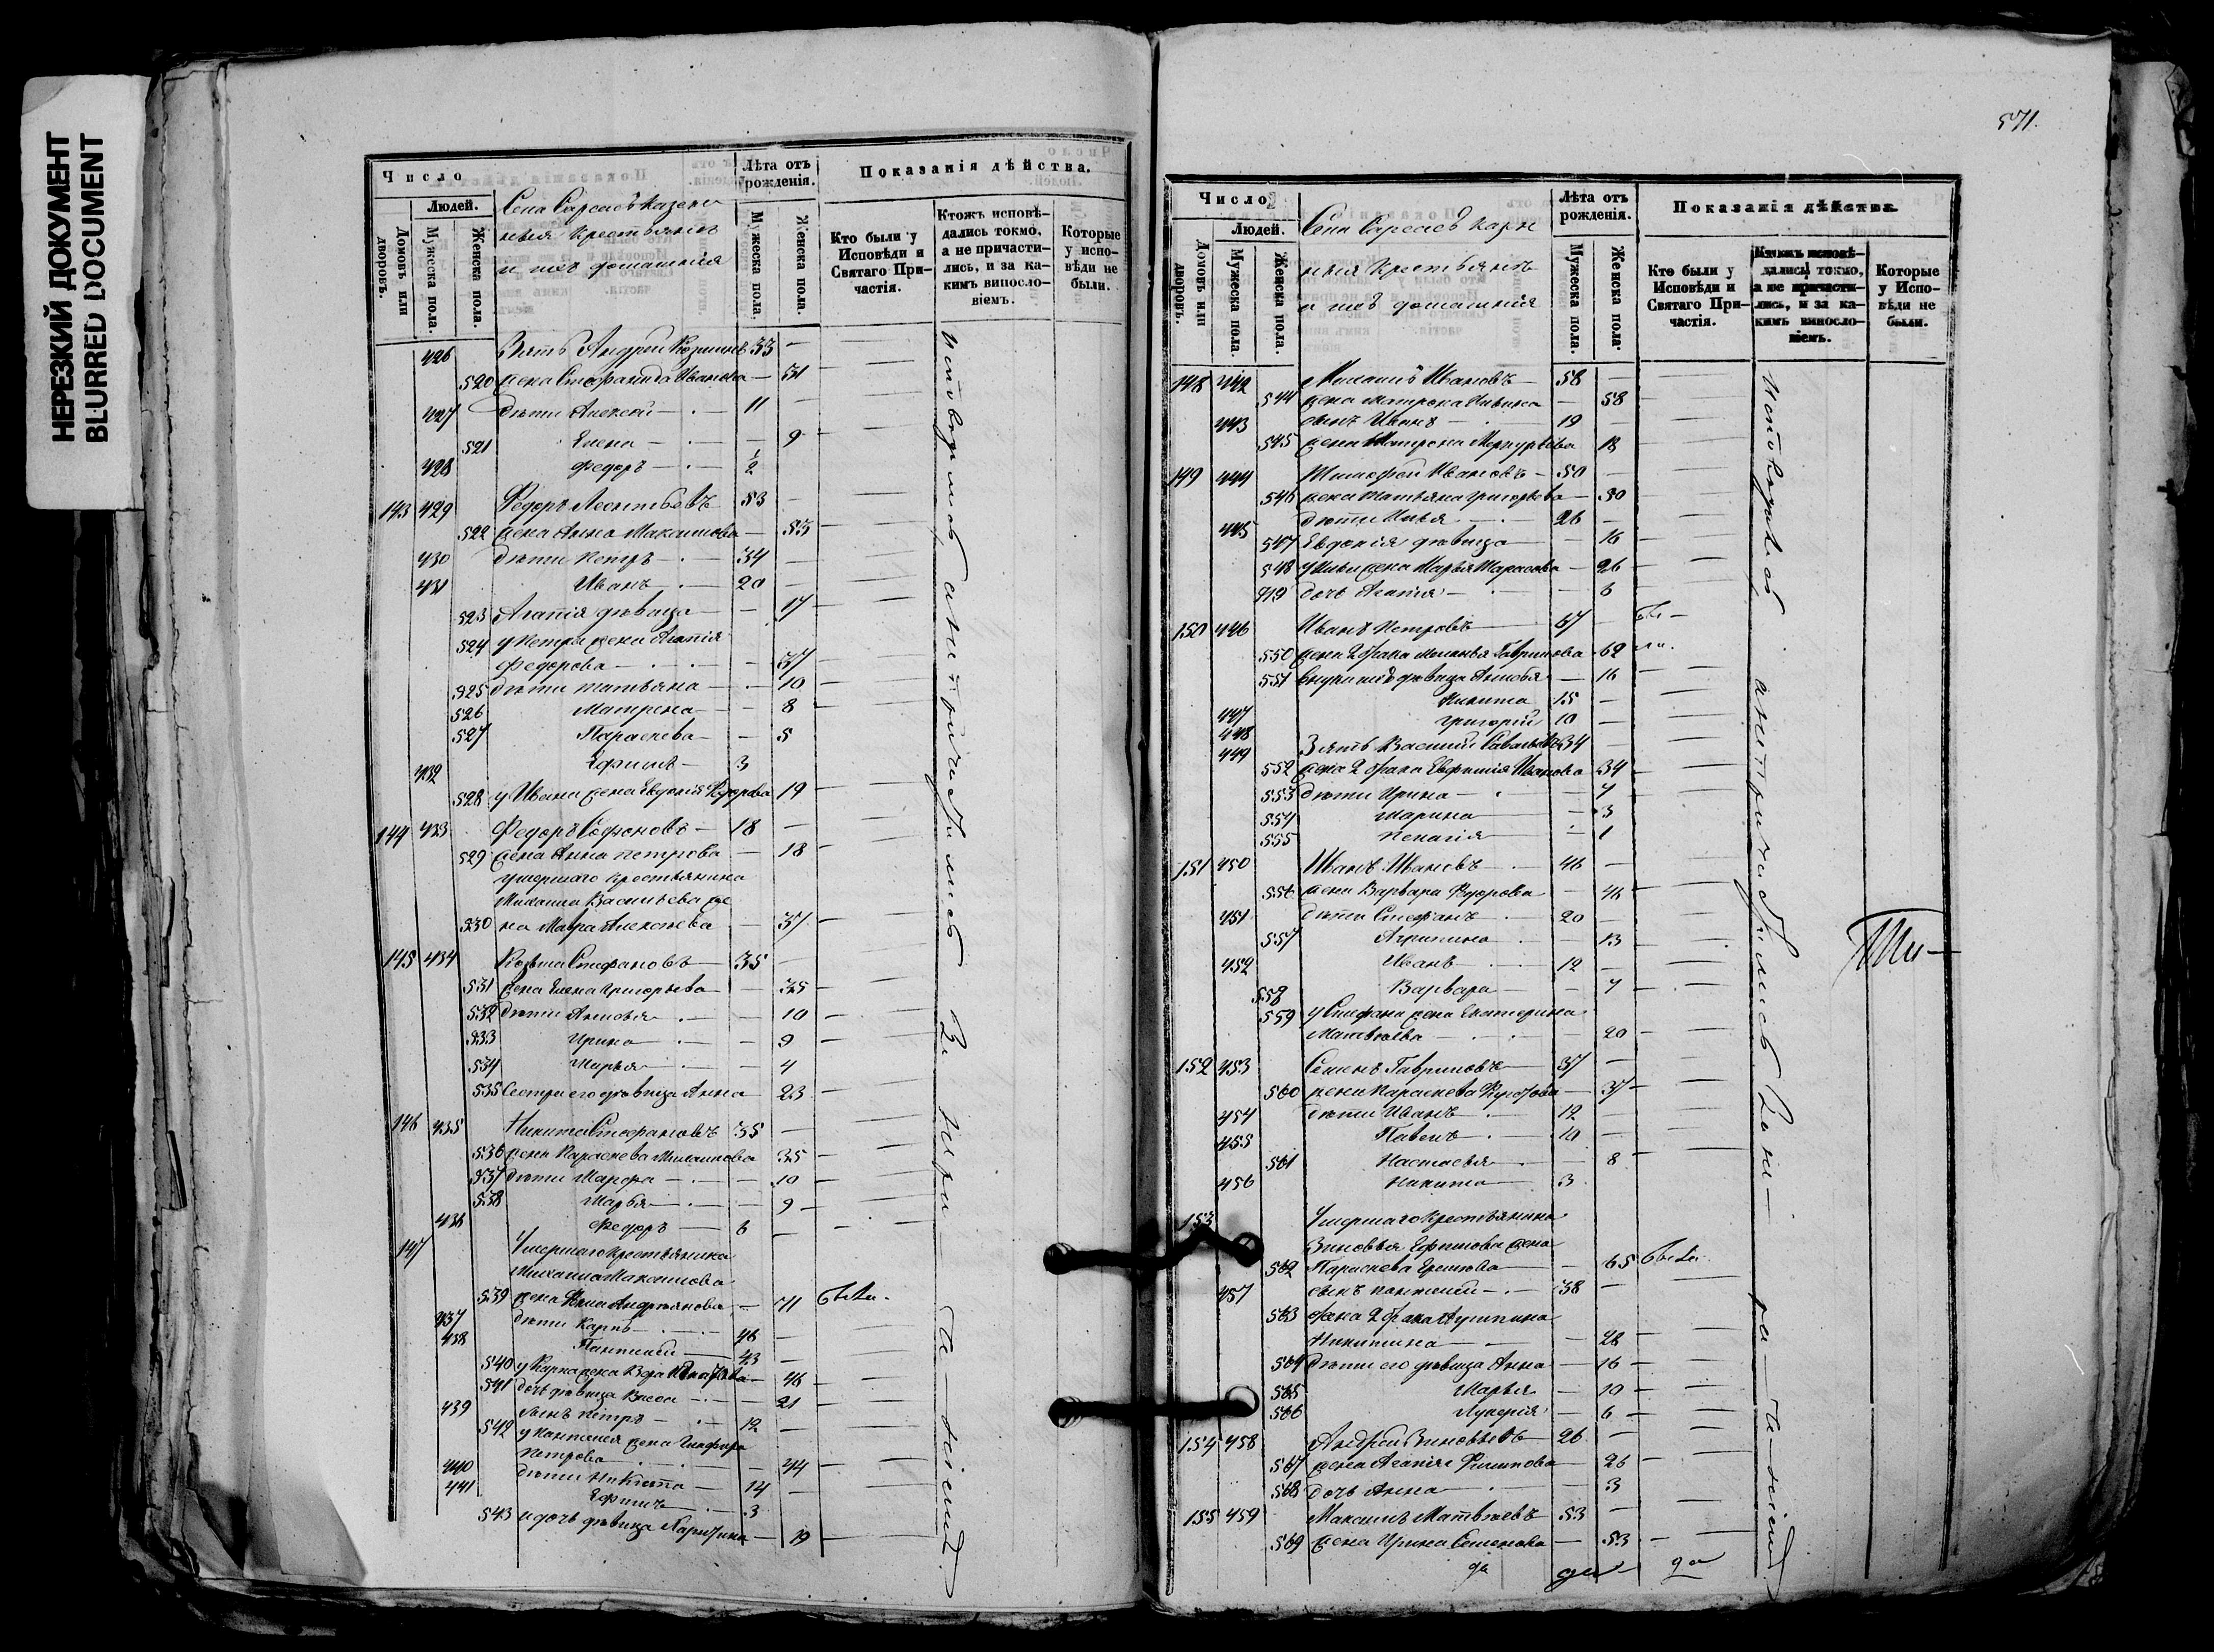 НЕРЕЗКИЙ ДОКУМЕНТ
BLURRED DOCUMENT
Число
Людей.
Домовъ или дворовъ.
Мужеска пола.
Женска пола.
Села казен
ныя крестьяне
и ихъ домашнія
Лѣта отъ рожденія.
Мужеска пола.
Женска пола.
Показанія дѣйства.
Кто были у Исповѣди и Святаго Причастія.
Ктожъ исповѣдались токмо, а не причастились, и за какимъ винословіемъ.
Которые у исповѣди не были.
426 Зять Андрей 33 —
520 жена Иванова — 31
427 дѣти Алексѣй — 11 —
521 Елена — 9
428 Федоръ — 1/2
143 429 Федоръ Леонтьевъ 53 —
522 жена Анна Максимова — 53
430 дѣти Петръ — 34 —
431 Иванъ — 20
523 Агапія дѣвица — 17
524 у Петра жена Агапія
Федорова — 37
525 дѣти Татьяна — 10
526 Матрена — 8
527 Параскева — 5
432 Ефимъ — 3
528 у Ивана жена Евдокія Федорова 19
144 433 Федоръ Софоновъ — 18 —
529 жена Анна Петрова — 18
умершаго крестьянина
Михаила Васильева же
530 на Мавра Алексѣева — 37
145 434 Козьма Стефановъ — 35 —
531 жена Елена Григорьева — 35
532 дѣти — 10
533 Ирина — 9
534 Марья — 4
535 Сестра его дѣвица Анна — 23
146 435 Никита Стефановъ 35 —
536 жена Параскева Михаилова 35
537 дѣти Марфа — 10
538 Марья — 9
436 Федоръ — 6
147 Умершаго крестьянина
Михаила Максимова
539 жена Анна Андреянова — 71 была
437 дѣти Карпъ — 46 —
438 Пантелей — 43 —
540 у Карпа жена — 46
541 дочь дѣвица Васса — 21
439 сынъ Петръ — 12 —
542 у Пантелея жена
Петрова — 44
440 дѣти Никита — 14
441 Ефимъ — 3
543 и дочь дѣвица — 19
исповѣдались а не причастились
571.
Число
Людей.
Домовъ или дворовъ.
Мужеска пола.
Женска пола.
Села
ныя крестьяне
и ихъ домашнія
Лѣта отъ рожденія.
Мужеска пола.
Женска пола.
Показанія дѣйства.
Кто были у Исповѣди и Святаго Причастія.
Ктожъ исповѣдались токмо, а не причастились, и за какимъ винословіемъ.
Которые у Исповѣди не были.
148 442 Михаилъ Ивановъ — 58 —
544 жена Матрона — 58
443 сынъ Иванъ — 19 —
545 жена Матрона Меркурьева 18
149 444 Тимофей Ивановъ — 50 —
546 жена Татьяна Григорьева — 50
445 дѣти Илья — 26 —
547 Евдокія дѣвица — 16
548 у Ильи жена Марья Тарасова — 26
549 дочь Агапія — 6
150 446 Иванъ Петровъ — 67 — бы
550 жена 2 брака Гаврилова 62 ли.
551 внуки ихъ дѣвица — 16
447 Никита 15 —
448 Григорій 10 —
449 Зять Василій Савельевъ 34 —
552 жена 2 брака Евфимія Иванова 34
553 дѣти Ирина — 7
554 Марина — 3
555 Пелагія — 1
151 450 Иванъ Ивановъ — 46 —
556 жена Варвара Федорова — 46
451 дѣти Стефанъ — 20 —
557 Агрипина — 13
452 Иванъ — 12 —
558 Варвара — 7
559 у Стефана жена Екатерина
Матвѣева — 20
152 453 Семенъ Гавриловъ — 37 —
560 жена Параскева — 37
454 дѣти Иванъ — 12 —
455 Павелъ — 10 —
561 Настасья — 8
456 Никита — 3
153 Умершаго крестьянина
Зиновья Ефимова жена
562 Параскева — 65 была
457 сынъ Пантелей — 38 —
563 жена 2 брака
Никитина — 28
564 дѣти его дѣвица Анна — 16
565 Марья — 10
566 Лукерія — 6
154 458 Андрей Зиновьевъ — 26 —
567 жена Агапія Филипова — 26
568 дочь Анна — 3
155 459 Максимъ Матвѣевъ — 53 —
569 жена Ирина Семенова — 53
исповѣдались а не причастились